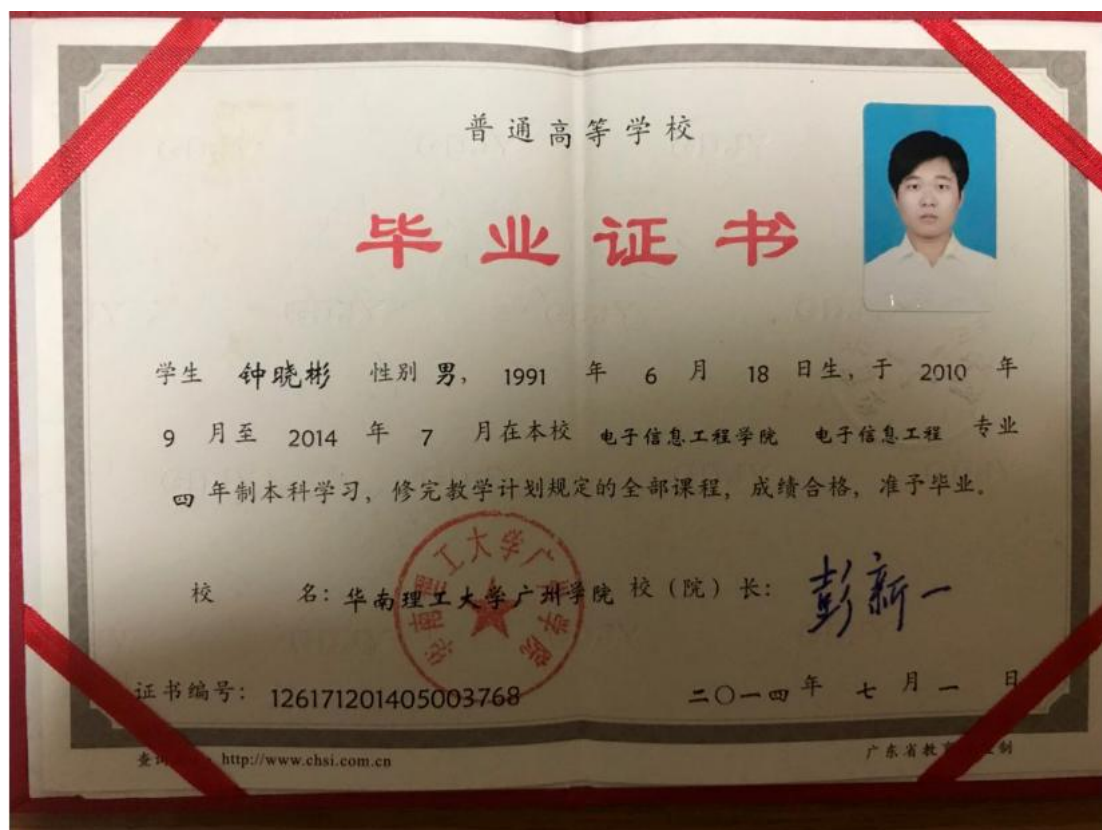 普通高等学校
毕业证书
学生 钟晓彬 性别 男, 1991 年 6 月 18 日生, 于 2010 年
9 月至 2014 年 7 月在本校 电子信息工程学院 电子信息工程 专业
四 年制本科学习, 修完教学计划规定的全部课程, 成绩合格, 准予毕业。
校 名: 华南理工大学广州学院 校(院)长: 彭新一
华南理工大学广州学院
证书编号: 126171201405003768 二〇一四 年 七 月 一 日
查 http://www.chsi.com.cn 广东省教 制